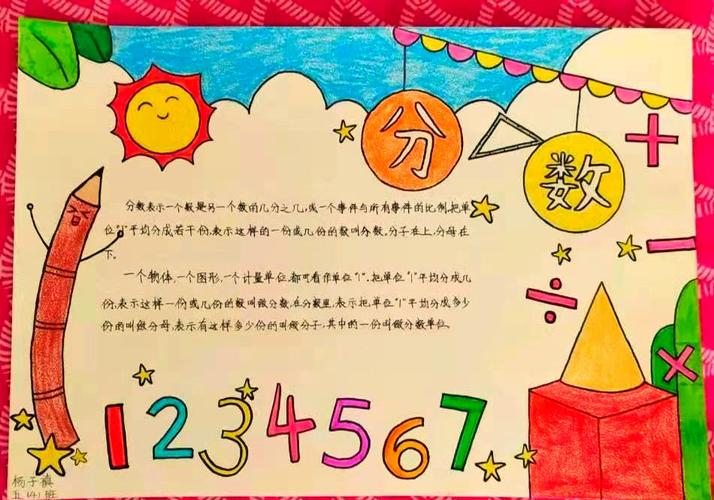 分数
分数表示一个数是另一个数的几分之几,或一个事件与所有事件的比例.把单
位"1"平均分成若干份,表示这样的一份或几份的数叫分数.分子在上,分母在
下。
一个物体,一个图形,一个计量单位,都可看作单位"1".把单位"1"平均分成几
份,表示这样一份或几份的数叫做分数,在分数里,表示把单位"1"平均分成多少
份的叫做分母,表示有这样多少份的叫做分子,其中的一份叫做分数单位
+
-
÷
×
1234567
杨子禛
五(4)班